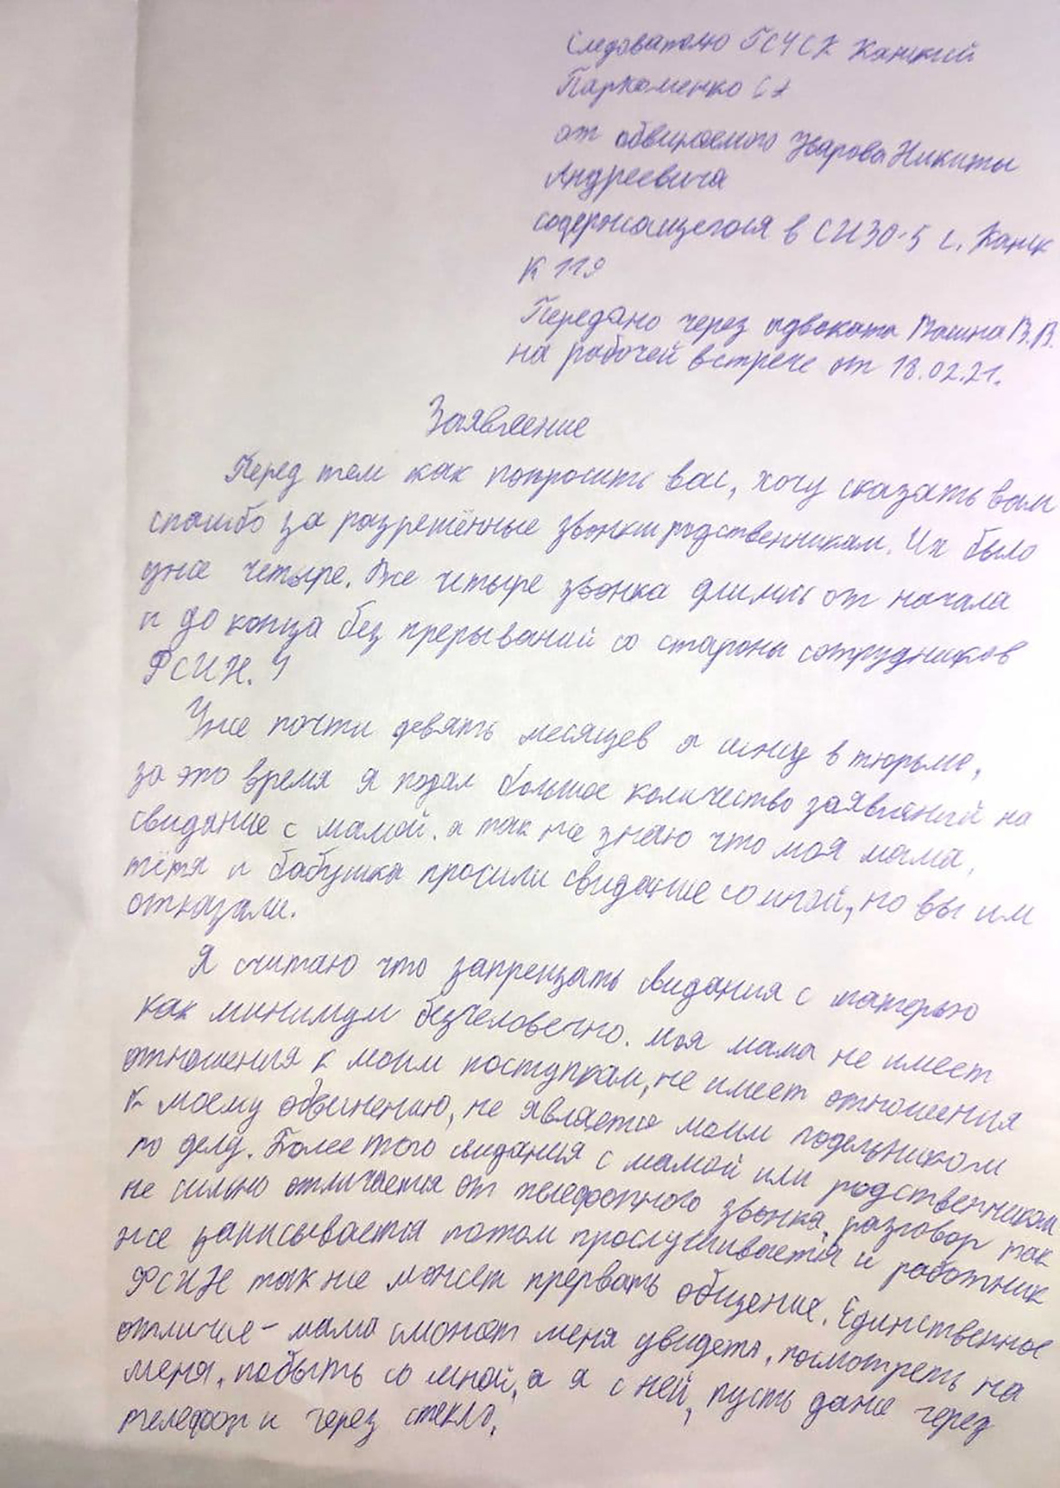 Следователю ГСУСК Канский
Пархоменко СА
от обвиняемого Уварова Никиты
Андреевича
содержащегося в СИЗО-5 г. Канск
К 119
Передано через адвоката Васина В.В.
на рабочей встрече от 18.02.21.
Заявление
Перед тем как попросить вас, хочу сказать вам
спасибо за разрешённые звонки родственникам. Их было
уже четыре. Все четыре звонка длились от начала
и до конца без прерываний со стороны сотрудников
ФСИН.
Уже почти девять месяцев я сижу в тюрьме,
за это время я подал большое количество заявлений на
свидание с мамой. а так же знаю что моя мама,
тётя и бабушка просили свидание со мной, но вы им
отказали.
Я считаю что запрещать свидания с матерью
как минимум безчеловечно. Моя мама не имеет
отношения к моим поступкам, не имеет отношения
к моему обвинению, не является моим подельником
по делу. Более того свидания с мамой или родственником
не сильно отличается от телефонного звонка, разговор так
же записывается потом прослушивается и работник
ФСИН так же может прервать общение. Единственное
отличие - мама сможет меня увидеть, посмотреть на
меня, побыть со мной, а я с ней, пусть даже через
телефон и через стекло.